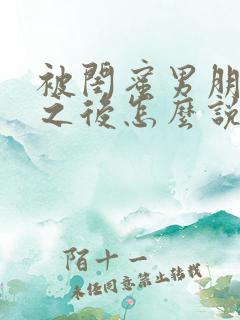 被閨蜜男朋
之後怎麼說
陌十一
未经同意禁止转载